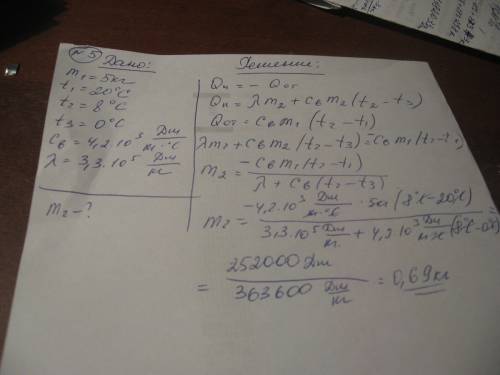 №5 Дано:
m₁ = 5кг
t₁ = 20°C
t₂ = 8°C
t₃ = 0°C
Cв = 4,2·10³ Дж/кг·°C
λ = 3,3·10⁵ Дж/кг
m₂ - ?
Решение:
Qп = - Qот
Qп = λm₂ + Cвm₂(t₂ - t₃)
Qот = Cвm₁(t₂ - t₁)
λm₂ + Cвm₂(t₂ - t₃) = -Cвm₁(t₂ - t₁)
m₂ = -Cвm₁(t₂ - t₁) / λ + Cв(t₂ - t₃)
m₂ = -4,2·10³ Дж/кг·°C · 5кг (8°C - 20°C) / 3,3·10⁵ Дж/кг + 4,2·10³ Дж/кг°C (8°C - 0°C)
= 252000 Дж / 363600 Дж/кг = 0,69кг